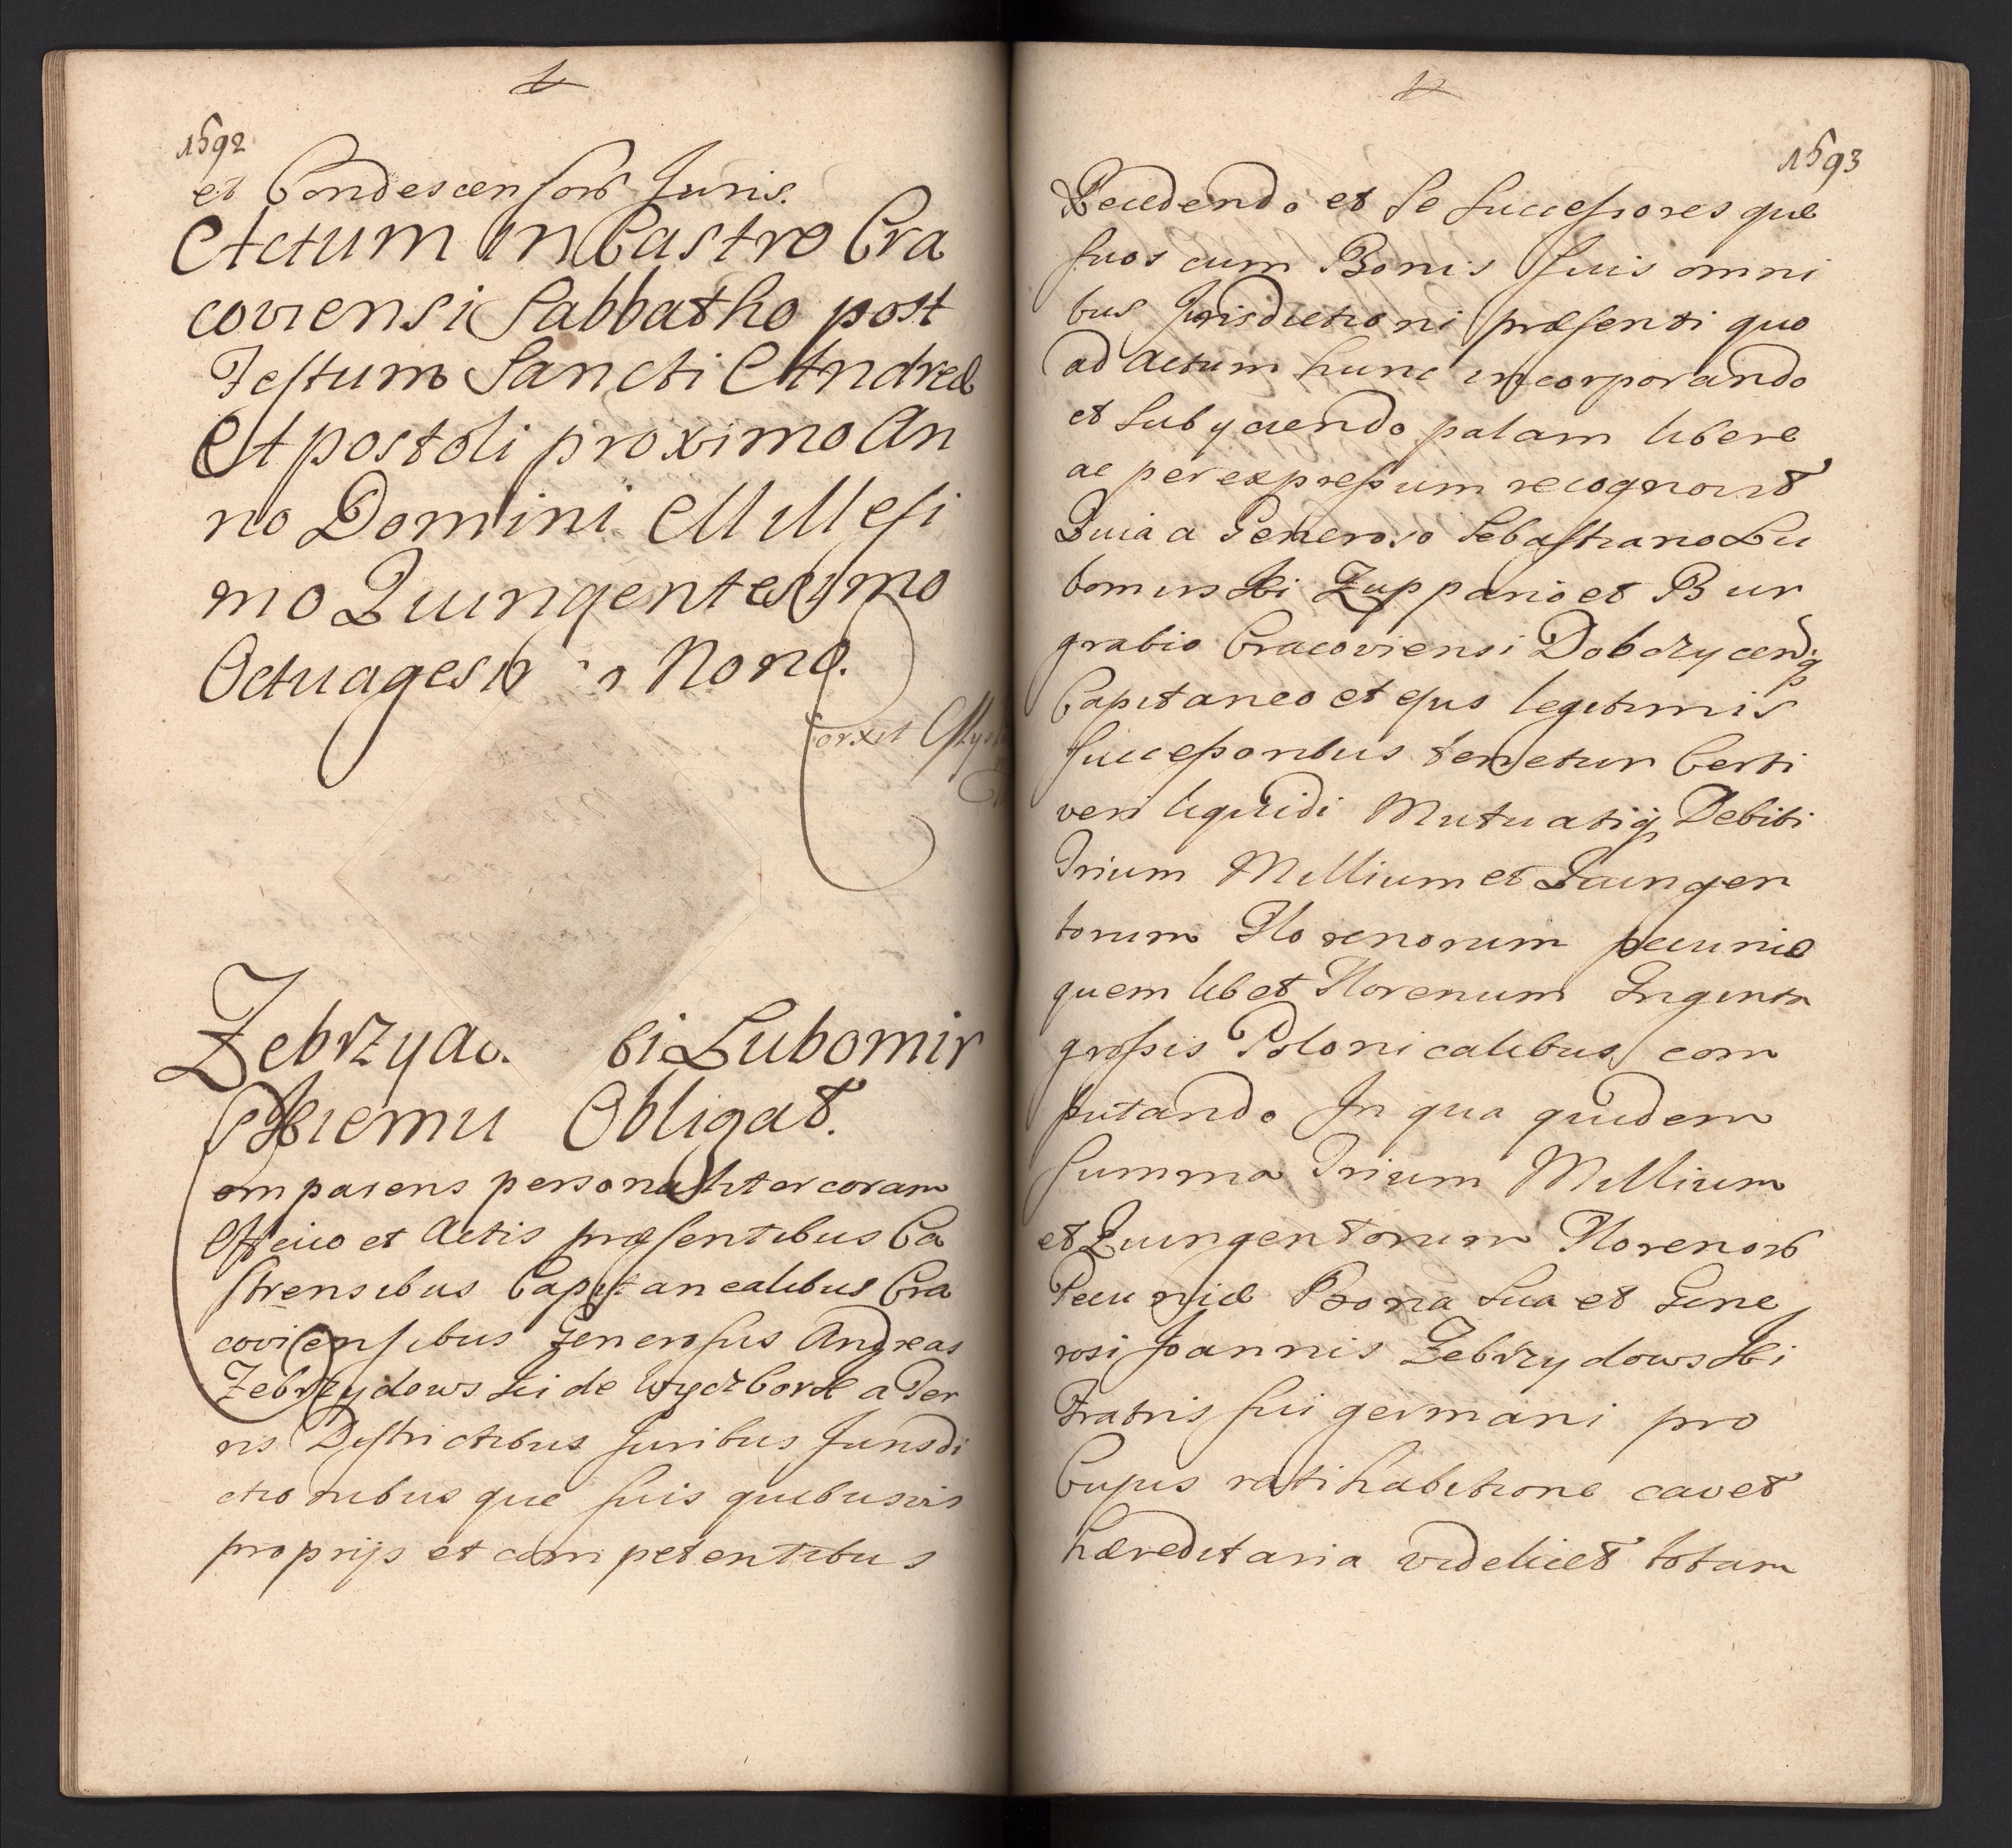 1592
et Condescensorum Juris.
Actum in Castro Cra
coviensi Sabbatho post
Festum Sancti Andreæ
Apostoli proximo An
no Domini Millesi
mo Quingentesimo
Octuages Nono.
Zebrzydo ki Lubomir
skiemu Obligat.
Comparens personaliter coram
Officio et Actis præsentibus Ca
strensibus Capitanealibus Cra
coviensibus Generosus Andreas
Zebrzydowski de Wyczbork a Ter
ris Districtibus Juribus Jurisdi
ctionibus que suis quibusvis
proprijs et competentibus
1593
Recedendo et Se Successores que
suos cum Bonis Suis omni
bus Jurisdictioni præsenti quo
ad Actum hunc incorporando
et Subyciendo palam libere
ac per expressum recognovit
Quia a Generoso Sebastiano Lu
bomirski Zuppario et Bur
grabio Cracoviensi Dobczycensiq
Capitaneo et ejus legitimis
Successoribus tenetur Certi
veri liquidi Mutuatiq Debiti
Trium Millium et Quingen
torum Florenorum pecuniæ
quemlibet Florenum Triginta
grossis Polonicalibus com
putando In qua quidem
Summa Trium Millium
et Quingentorum Florenorum
Pecuniæ Bona Sua et Gene
rosi Joannis Zebrzydowski
Fratris sui germani pro
Cujus ratihabitione cavet
hæreditaria videlicet totam